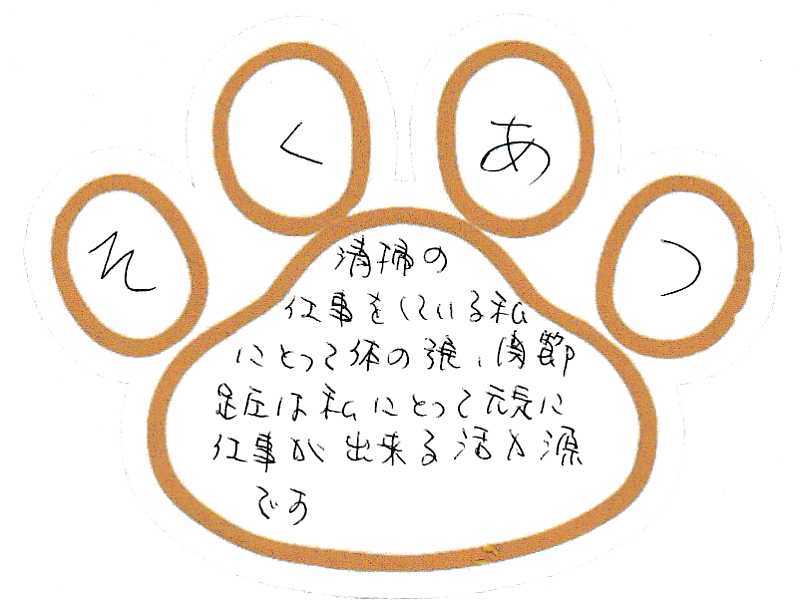 そ
く
あ
つ
清掃の
仕事をしている私
にとって体の張、関節
足圧は私にとって元気に
仕事が出来る活力源
です